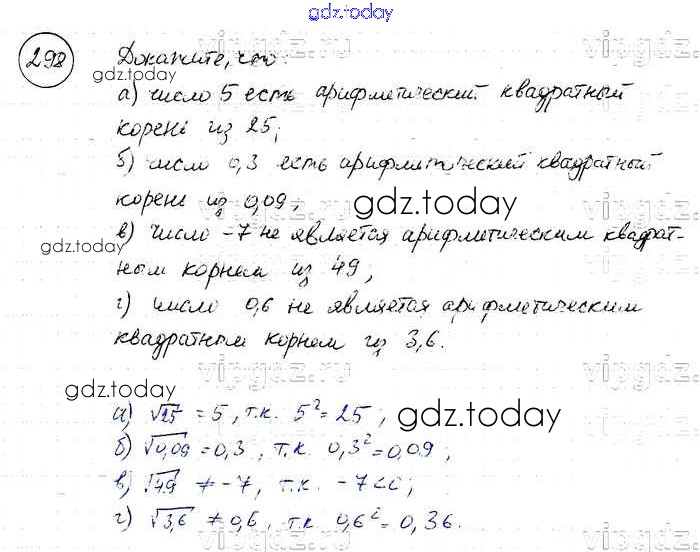 gdz.today
298 Докажите, что:
gdz.today
а) число 5 есть арифметический квадратный
корень из 25;
б) число 0,3 есть арифметический квадратный
корень из 0,09;
gdz.today
в) число -7 не является арифметическим квадрат-
gdz.today
ным корнем из 49;
г) число 0,6 не является арифметическим
квадратным корнем из 3,6.
vipgdz.ru
gdz.today
а) √25 = 5, т.к. 5² = 25;
gdz.today
б) √0,09 = 0,3, т.к. 0,3² = 0,09;
в) √49 ≠ -7, т.к. -7<0;
г) √3,6 ≠ 0,6, т.к. 0,6² = 0,36.
vipgdz.ru